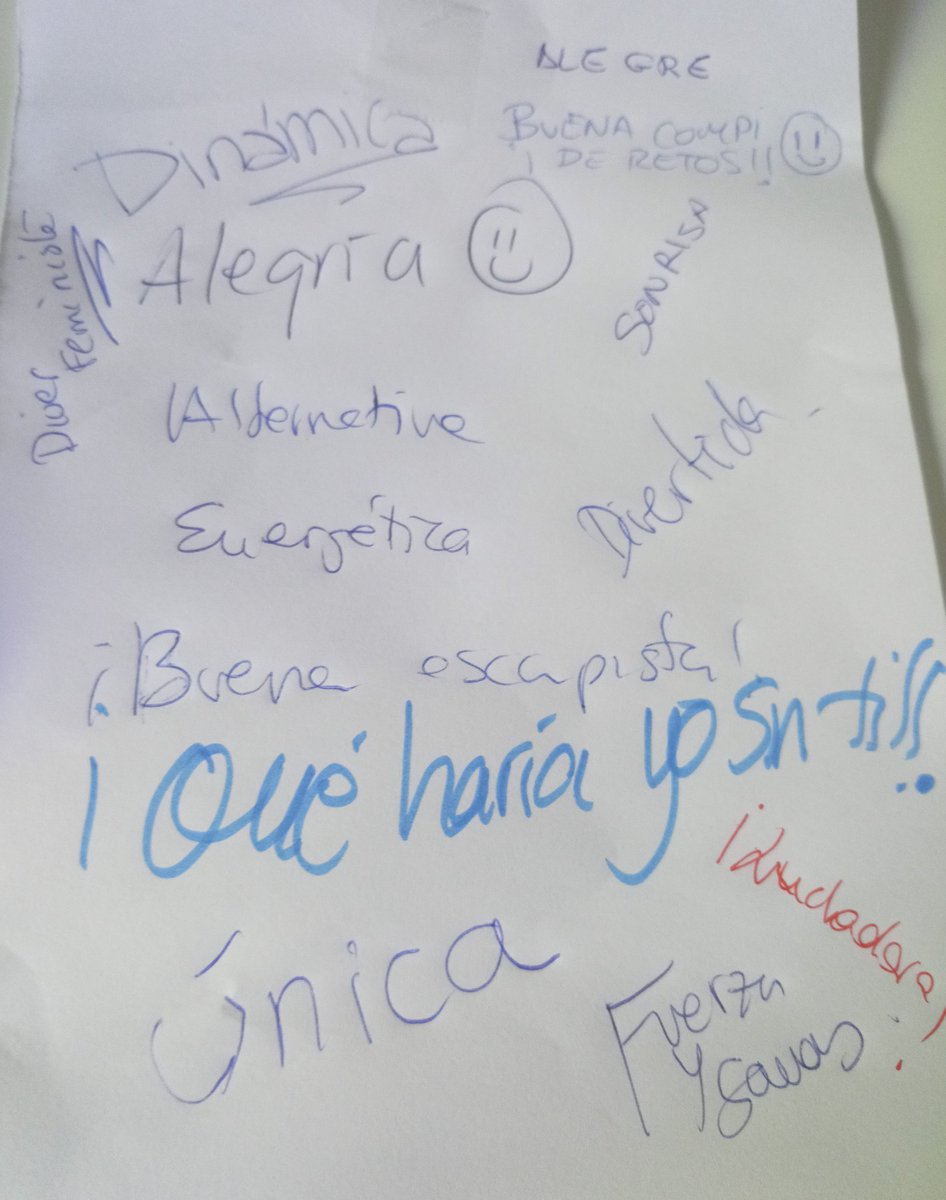 ALEGRE
Dinámica
BUENA COMPI
¡DE RETOS!!
Alegría
SONRISA
Diver
Feminista
Alternativa
Divertida
Energética
¡Buena escapista!
¡Qué haría yo sin ti!!
Única
Fuerza
y ganas